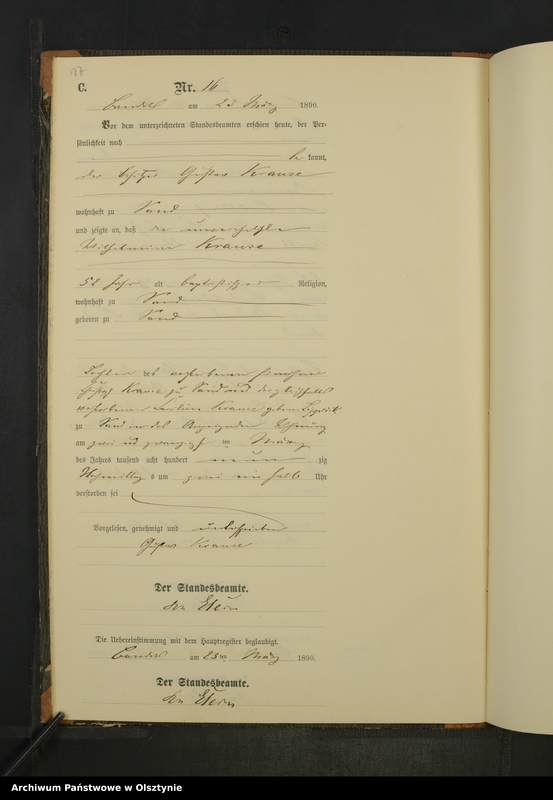 C. Nr. 16
am 23 März 1890.
Vor dem unterzeichneten Standesbeamten erschien heute, der Per-
sönlichkeit nach
be kannt,
der Besitzer Gustav Krause
wohnhaft zu Sand
und zeigte an, daß die unverehelichte
Wilhelmine Krause
52 Jahr alt baptistischer Religion,
wohnhaft zu Sand
geboren zu Sand
Tochter des verstorbenen
Gustav Krause zu Sand und
verstorbenen Krause geborene
zu Sand in des Anzeigenden Wohnung
am zwei und zwanzigsten März
des Jahres tausend acht hundert neun zig
Nachmittags um zwei ein halb Uhr
verstorben sei
Vorgelesen, genehmigt und unterschrieben
Gustav Krause
Der Standesbeamte.
Die Uebereinstimmung mit dem Hauptregister beglaubigt.
am 23ten März 1890.
Der Standesbeamte.
Archiwum Państwowe w Olsztynie